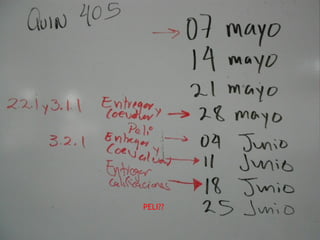 QUIN 405
07 mayo
14 mayo
21 mayo
2.2.1 y 3.1.1 Entregar y Coevaluar 28 mayo
Peli
3.2.1 Entregar y Coevaluar 04 Junio
11 Junio
Entregar calificaciones 18 Junio
25 Junio
PELI??